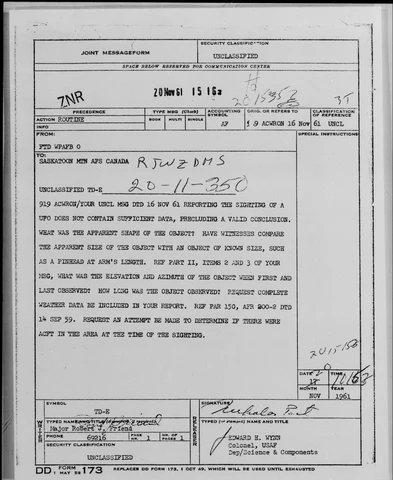 JOINT MESSAGEFORM
SECURITY CLASSIFICATION
UNCLASSIFIED
SPACE BELOW RESERVED FOR COMMUNICATION CENTER
ZNR
20 Nov 61 15 16z
PRECEDENCE
TYPE MSG (Check)
ACCOUNTING SYMBOL
ORIG. OR REFERS TO
CLASSIFICATION OF REFERENCE
ACTION ROUTINE
BOOK MULTI SINGLE
AF
919 ACWRON 16 Nov 61 UNCL
INFO
FROM:
SPECIAL INSTRUCTIONS
FTD WPAFB O
TO:
SASKATOON MTN AFS CANADA RJWZDMS
UNCLASSIFIED TD-E 20-11-350
919 ACWRON/YOUR UNCL MSG DTD 16 NOV 61 REPORTING THE SIGHTING OF A
UFO DOES NOT CONTAIN SUFFICIENT DATA, PRECLUDING A VALID CONCLUSION.
WHAT WAS THE APPARENT SHAPE OF THE OBJECT? HAVE WITNESSES COMPARE
THE APPARENT SIZE OF THE OBJECT WITH AN OBJECT OF KNOWN SIZE, SUCH
AS A PINHEAD AT ARM'S LENGTH. REF PART II, ITEMS 2 AND 3 OF YOUR
MSG, WHAT WAS THE ELEVATION AND AZIMUTH OF THE OBJECT WHEN FIRST AND
LAST OBSERVED? HOW LONG WAS THE OBJECT OBSERVED? REQUEST COMPLETE
WEATHER DATA BE INCLUDED IN YOUR REPORT. REF PAR 15G, AFR 200-2 DTD
14 SEP 59. REQUEST AN ATTEMPT BE MADE TO DETERMINE IF THERE WERE
ACFT IN THE AREA AT THE TIME OF THE SIGHTING.
DATE TIME
MONTH YEAR
NOV 1961
SYMBOL
TD-E
SIGNATURE
TYPED NAME
Major Robert J. Friend
TYPED (or stamped) NAME AND TITLE
PHONE 69216
PAGE NR. 1
NR. OF PAGES 1
EDWARD H. WYNN
Colonel, USAF
Dep/Science & Components
SECURITY CLASSIFICATION
UNCLASSIFIED
DD FORM 1 MAY 55 173 REPLACES DD FORM 173, 1 OCT 49, WHICH WILL BE USED UNTIL EXHAUSTED